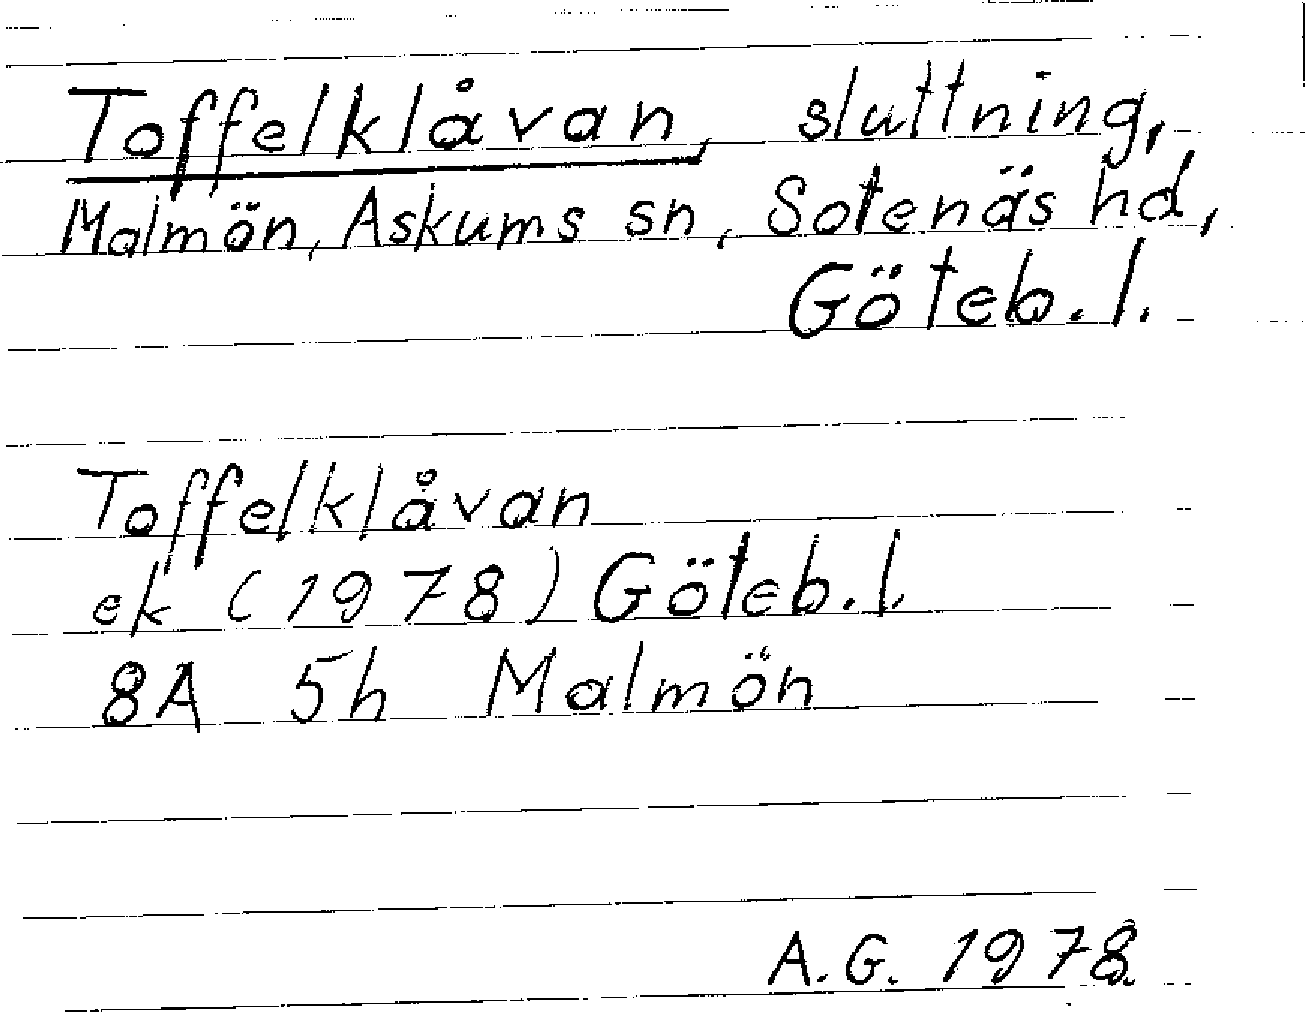 Toffelklåvan, sluttning,
Malmön, Askums sn, Sotenäs hd,
Göteb. l.
Toffelklåvan
ek (1978) Göteb. l.
8A 5h Malmön
A.G. 1978.